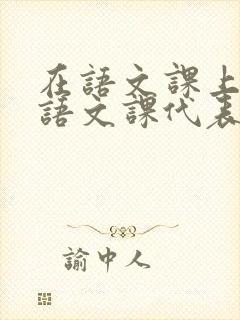 在語文課上
語文課代表
諭中人